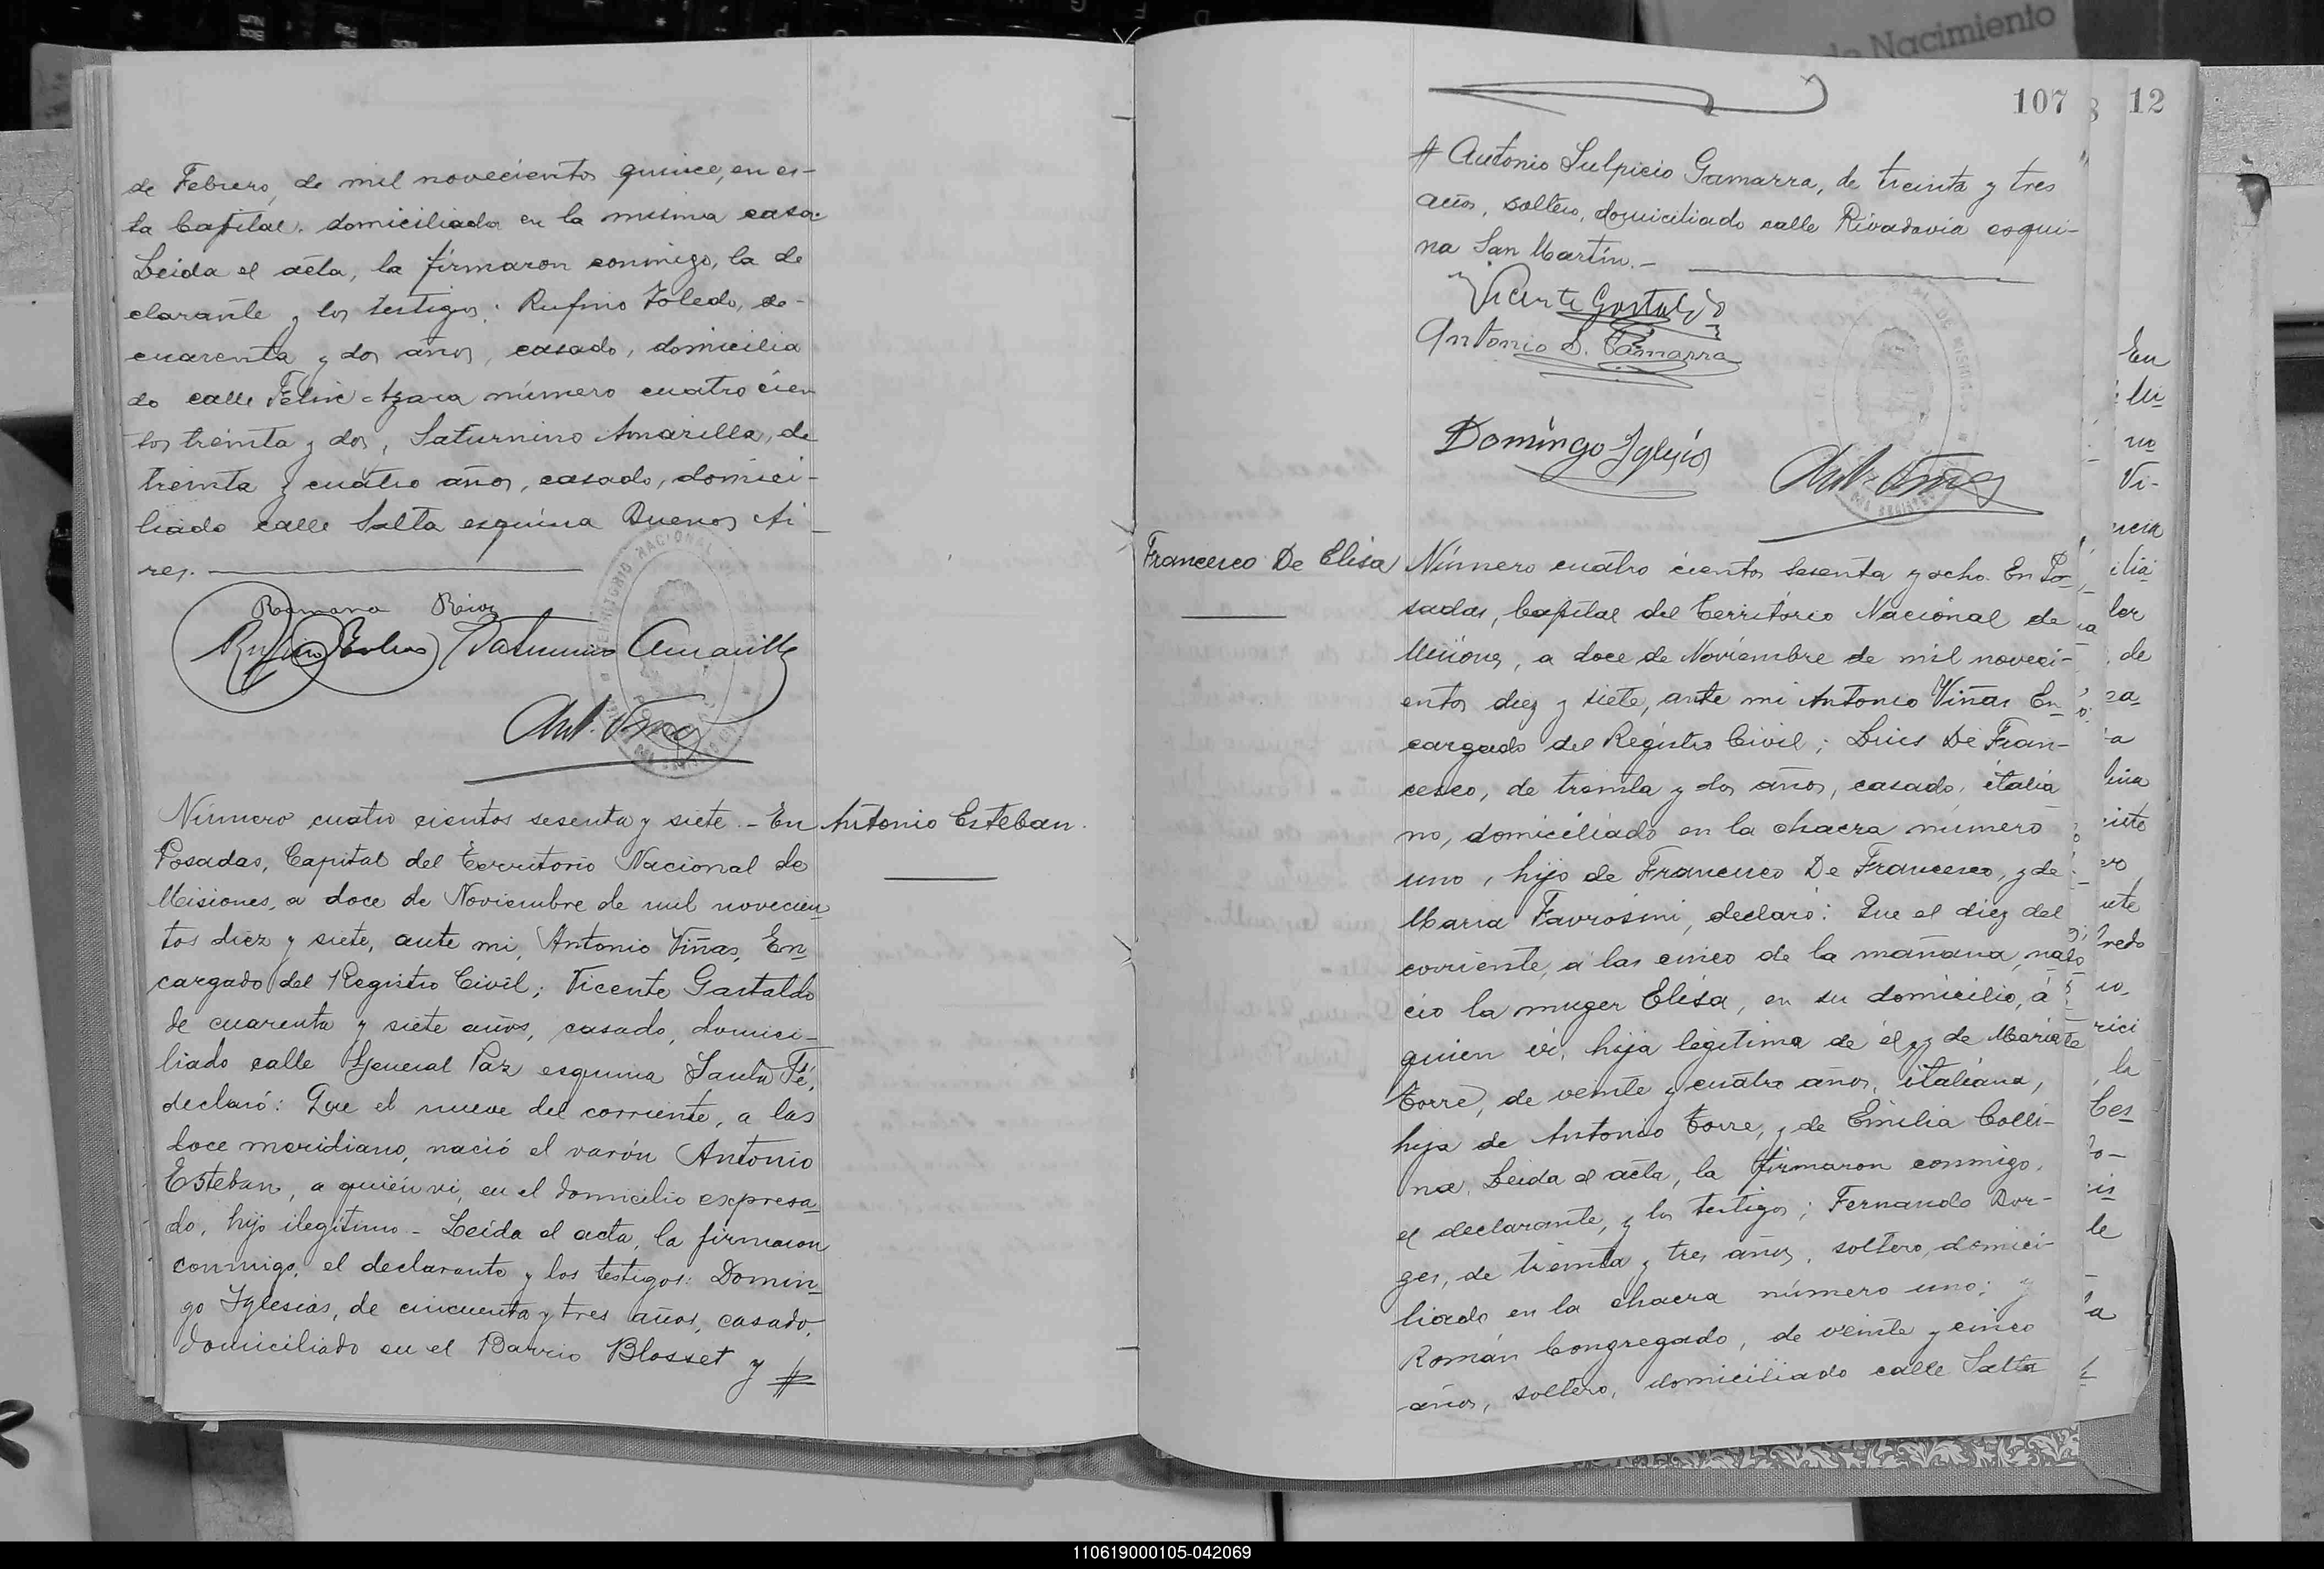 de Nacimiento
de Febrero, de mil novecientos quince, en es-
ta Capital. domiciliada en la misma casa.
Leida el acta, la firmaron conmigo, la de
clarante y los testigos: Rufino Toledo, de
cuarenta y dos años, casado, domicilia
do calle Felix Azara número cuatro cien
tos treinta y dos, Saturnino Amarilla, de
treinta y cuatro años, casado, domici-
liado calle Salta esquina Buenos Ai-
res.
Ramona Rios
Saturnino Amarilla
Número cuatro cientos sesenta y siete.- En
Posadas, Capital del Territorio Nacional de
Misiones, a doce de Noviembre de mil novecien
tos diez y siete, ante mi, Antonio Viñas, En
cargado del Registro Civil; Vicente Gastaldo
de cuarenta y siete años, casado, domici-
liado calle General Paz esquina Santa Fé,
declaró: Que el nueve del corriente, a las
doce meridiano, nació el varón Antonio
Esteban, a quien vi, en el domicilio expresa
do, hijo ilegitimo - Leída el acta, la firmaron
conmigo, el declarante y los testigos: Domin
go Iglesias, de cincuenta y tres años, casado,
domiciliado en el Barrio Blosset y #
Antonio Esteban.
107
12
# Antonio Sulpicio Gamarra, de treinta y tres
años, soltero, domiciliado calle Rivadavia esqui-
na San Martín.-
Vicente Gastaldo
Antonio S. Gamarra
Domingo Iglesias
Francesco De Elisa
Número cuatro cientos sesenta y ocho. En Po-
sadas, Capital del Territorio Nacional de
Misiones, a doce de Noviembre de mil noveci-
entos diez y siete, ante mi Antonio Viñas En-
cargado del Registro Civil; Luis De Fran-
cesco, de treinta y dos años, casado, italia
no, domiciliado en la chacra número
uno, hijo de Francesco De Francesco, y de
Maria Favrosini, declaró: Que el diez del
corriente, a las cinco de la mañana, na-
ció la muger Elisa, en su domicilio, á
quien vi, hija legitima de él y de Maria
Torre, de veinte y cuatro años, italiana,
hija de Antonio Torre, y de Emilia Colli-
na. Leida el acta, la firmaron conmigo,
el declarante, y los testigos; Fernando Bor-
ges, de treinta y tres años, soltero, domici-
liado en la chacra número uno; y
Román Congregado, de veinte y cinco
años, soltero, domiciliado calle Salta
110619000105-042069